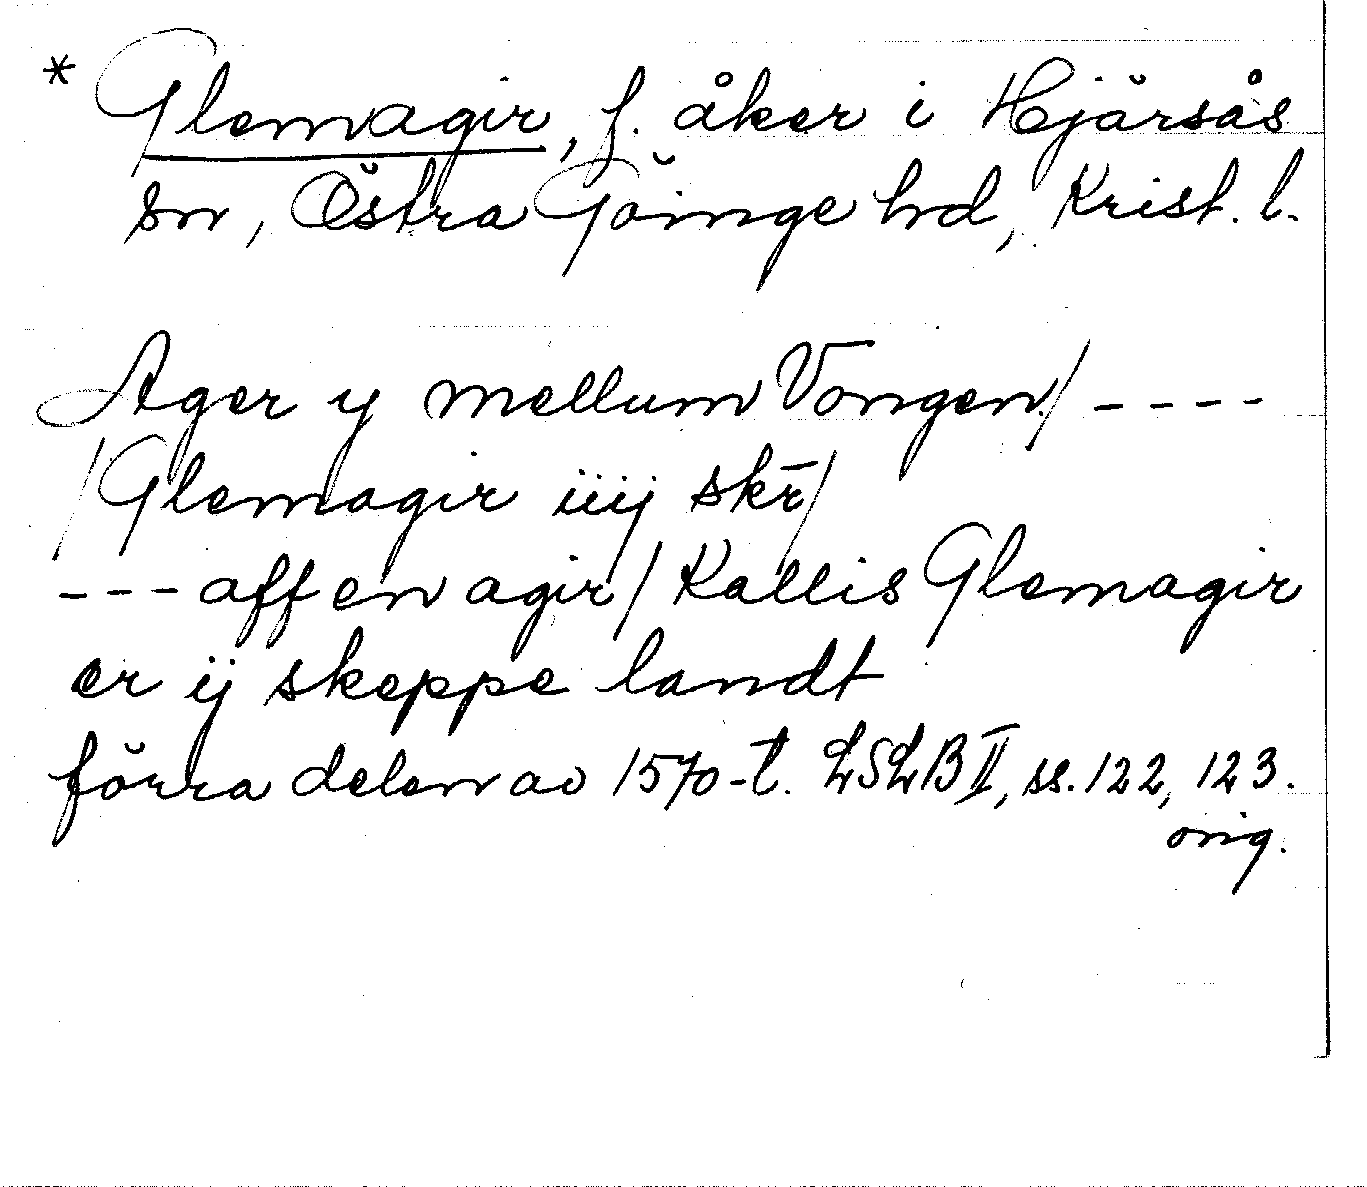 * Glemagir, f. åker i Hjärsås
sn, Östra Göinge hd, Krist. l.
Ager y mellum Vongen / - - - -
/ Glemagir iiij skr̄ /
- - - aff en agir / Kallis Glemagir
er ij skeppe landt
förra delen av 1570-t. LSLB II, ss. 122, 123.
orig.